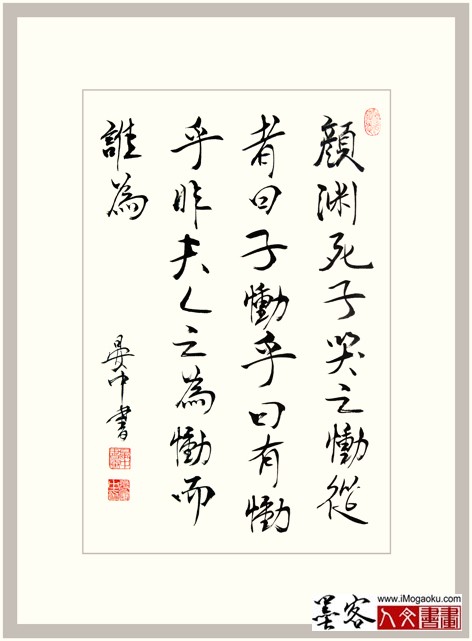 顏渊死子哭之慟從
者曰子慟乎曰有慟
乎非夫人之為慟而
誰為
晏中書
www.iMogaoku.com
墨客
人文書畫